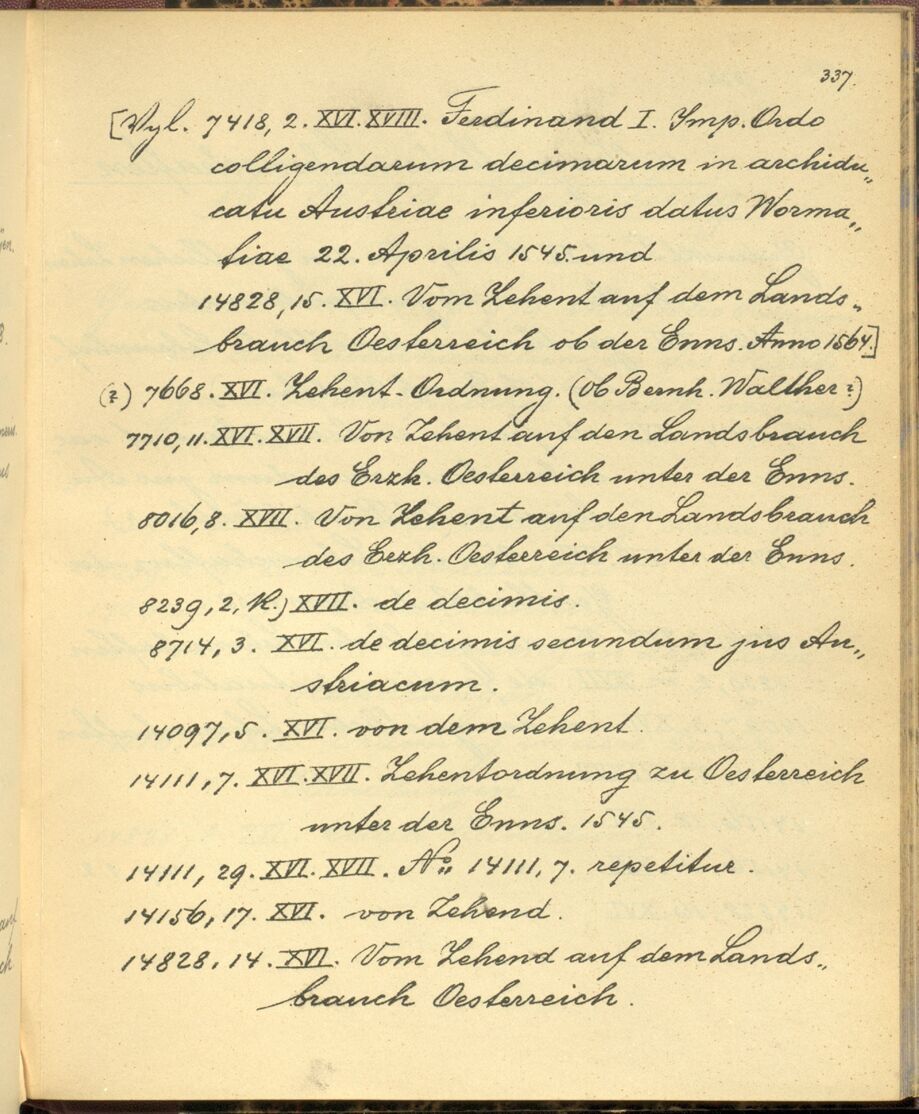 337.
[Vgl. 7418, 2. XVI. XVIII. Ferdinand I. Imp. Ordo
colligendarum decimarum in archidu„
catu Austriae inferioris datus Worma„
tiae 22. Aprilis 1545. und
14828, 15. XVI. Vom Zehent auf dem Lands„
brauch Oesterreich ob der Enns. Anno 1564.]
(?) 7668. XVI. Zehent-Ordnung. (ob Bernh. Walther?)
7710, 11. XVI. XVII. Von Zehent auf den Landsbrauch
des Erzh. Oesterreich unter der Enns.
8016, 8. XVII. Von Zehent auf den Landsbrauch
des Erzh. Oesterreich unter der Enns.
8239, 2, K.) XVII. de decimis.
8714, 3. XVI. de decimis secundum jus Au„
striacum.
14097, 5. XVI. von dem Zehent.
14111, 7. XVI. XVII. Zehentordnung zu Oesterreich
unter der Enns. 1545.
14111, 29. XVI. XVII. No„ 14111, 7. repetitur.
14156, 17. XVI. von Zehend.
14828, 14. XVI. Vom Zehend auf dem Lands„
brauch Oesterreich.